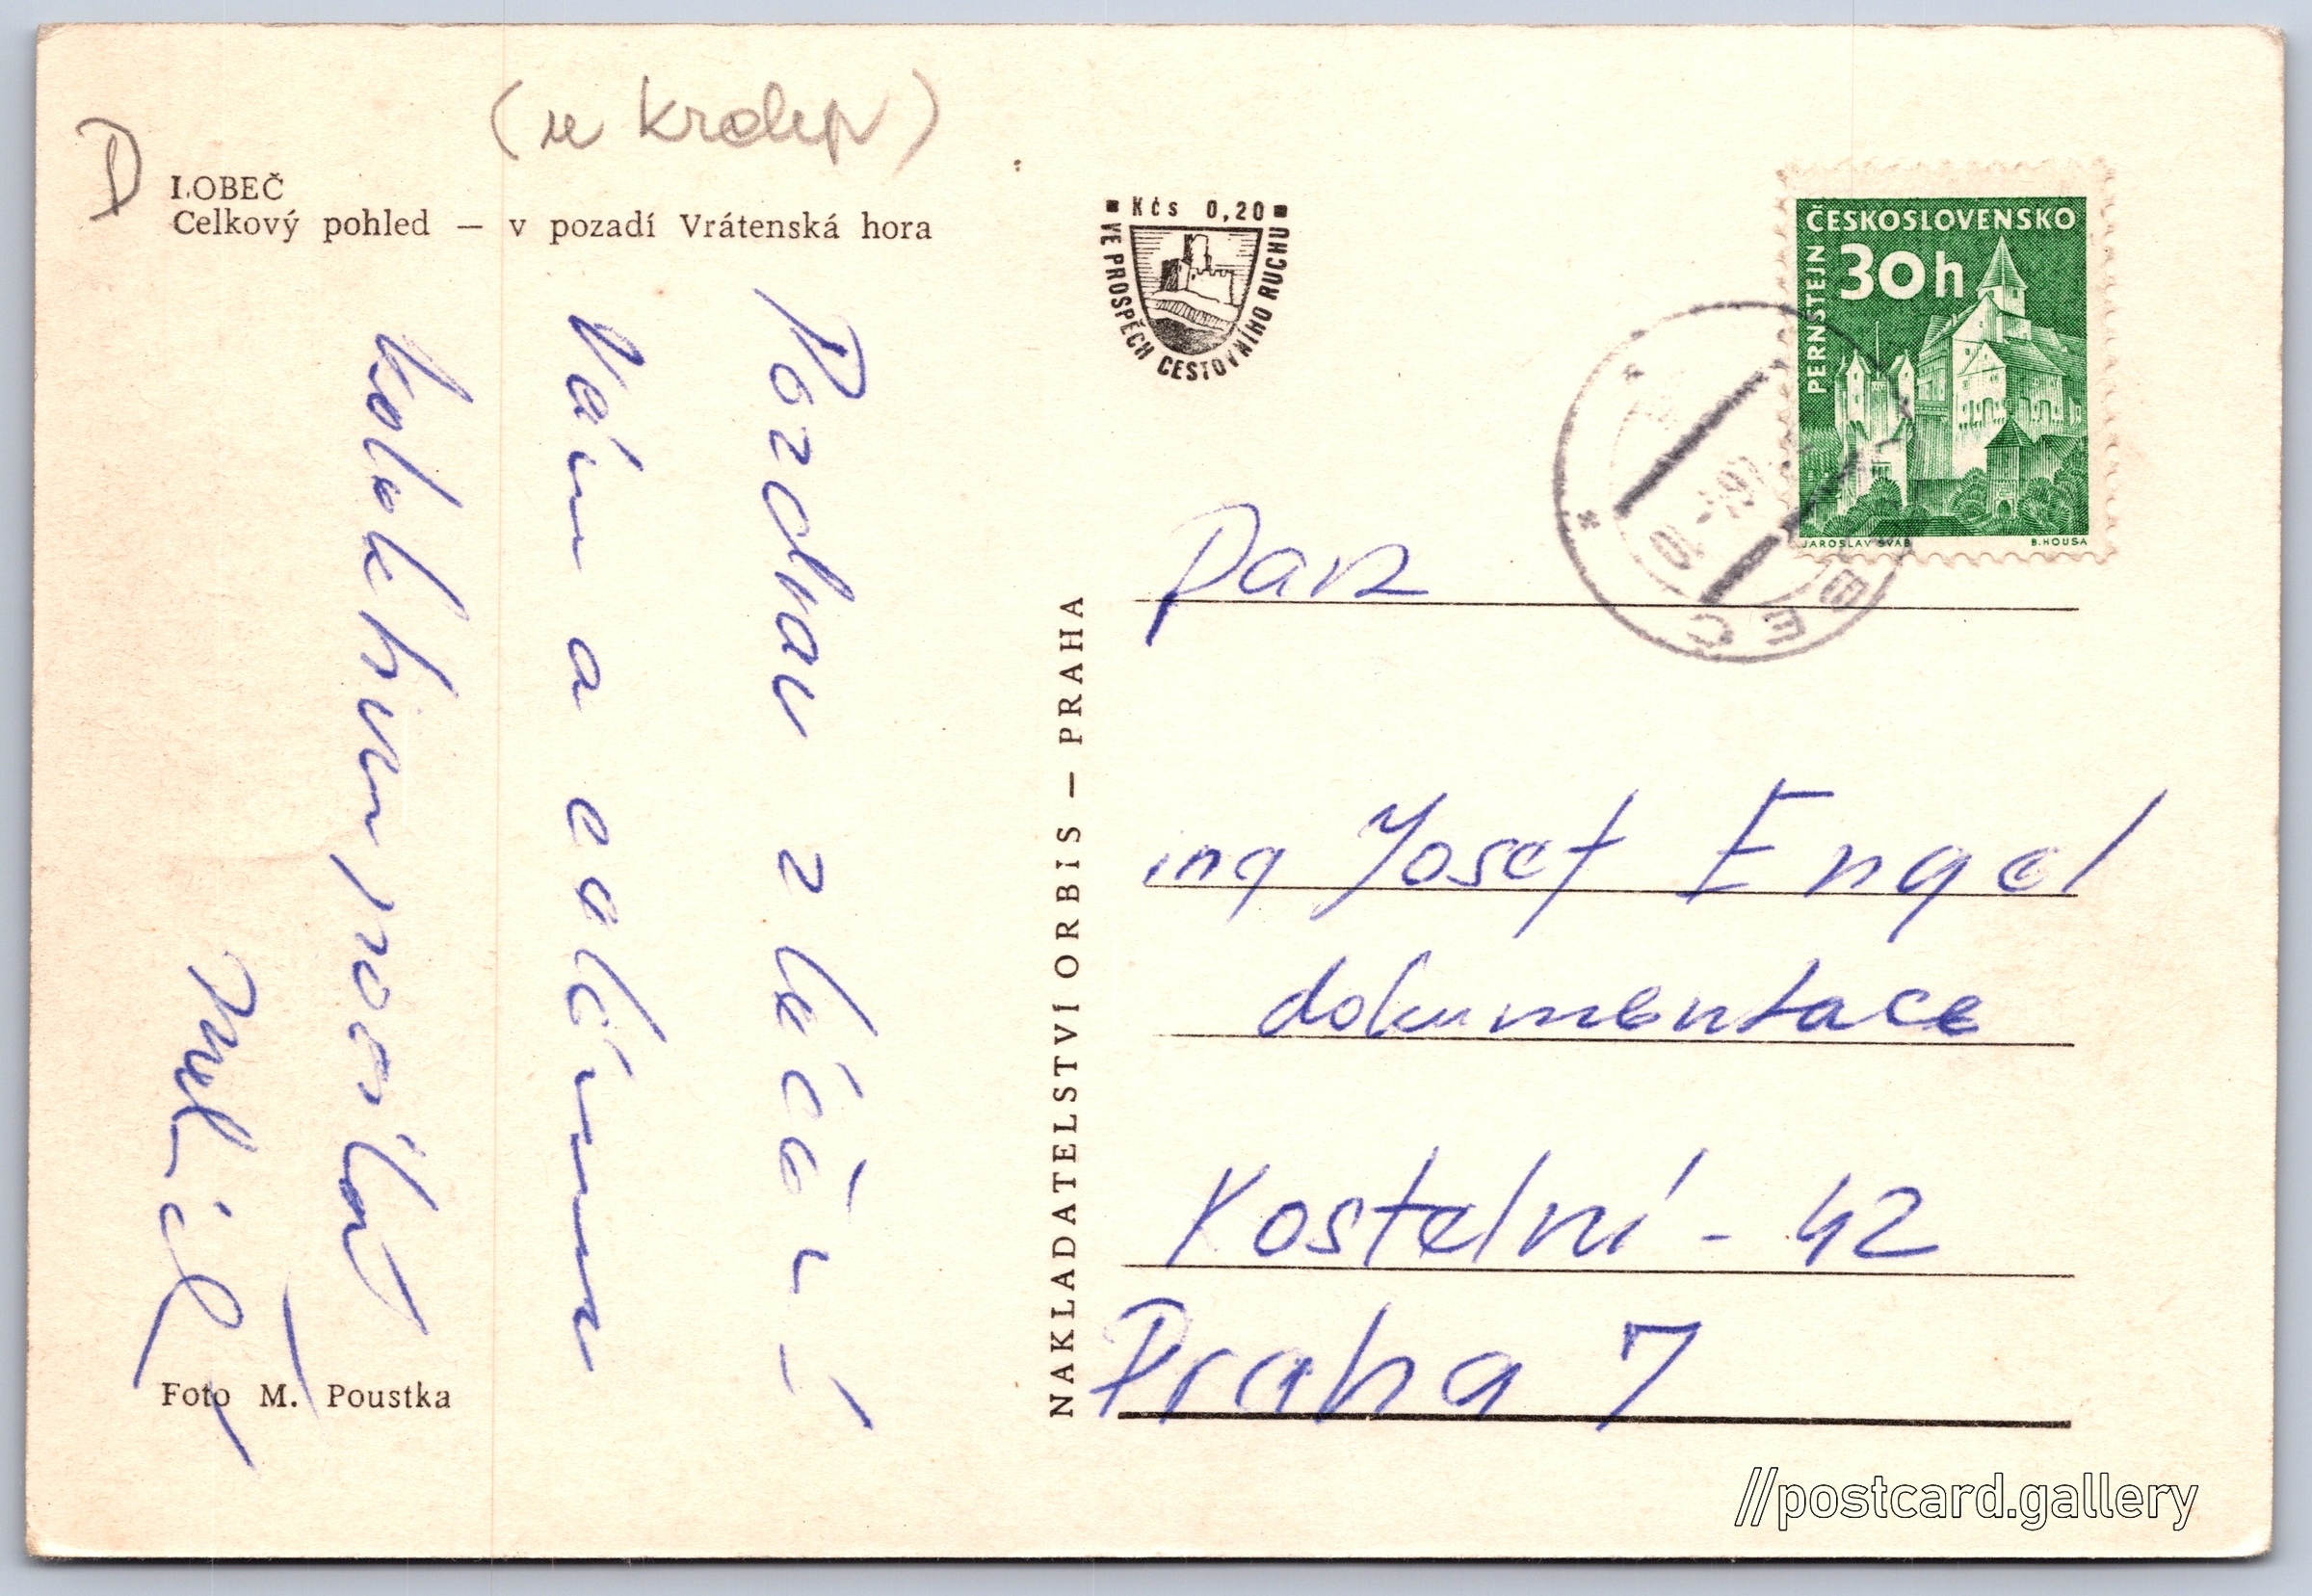 D
(u Kralup)
LOBEČ
Celkový pohled — v pozadí Vrátenská hora
Pozdrav z léčení
Vám a celému
kolektivu posílá
Foto M. Poustka
NAKLADATELSTVÍ ORBIS — PRAHA
Kčs 0,20
VE PROSPĚCH CESTOVNÍHO RUCHU
ČESKOSLOVENSKO
30h
PERNŠTEJN
JAROSLAV ŠVÁB B. HOUSA
Pan
ing Josef Engel
dokumentace
Kostelní - 42
Praha 7
//postcard.gallery